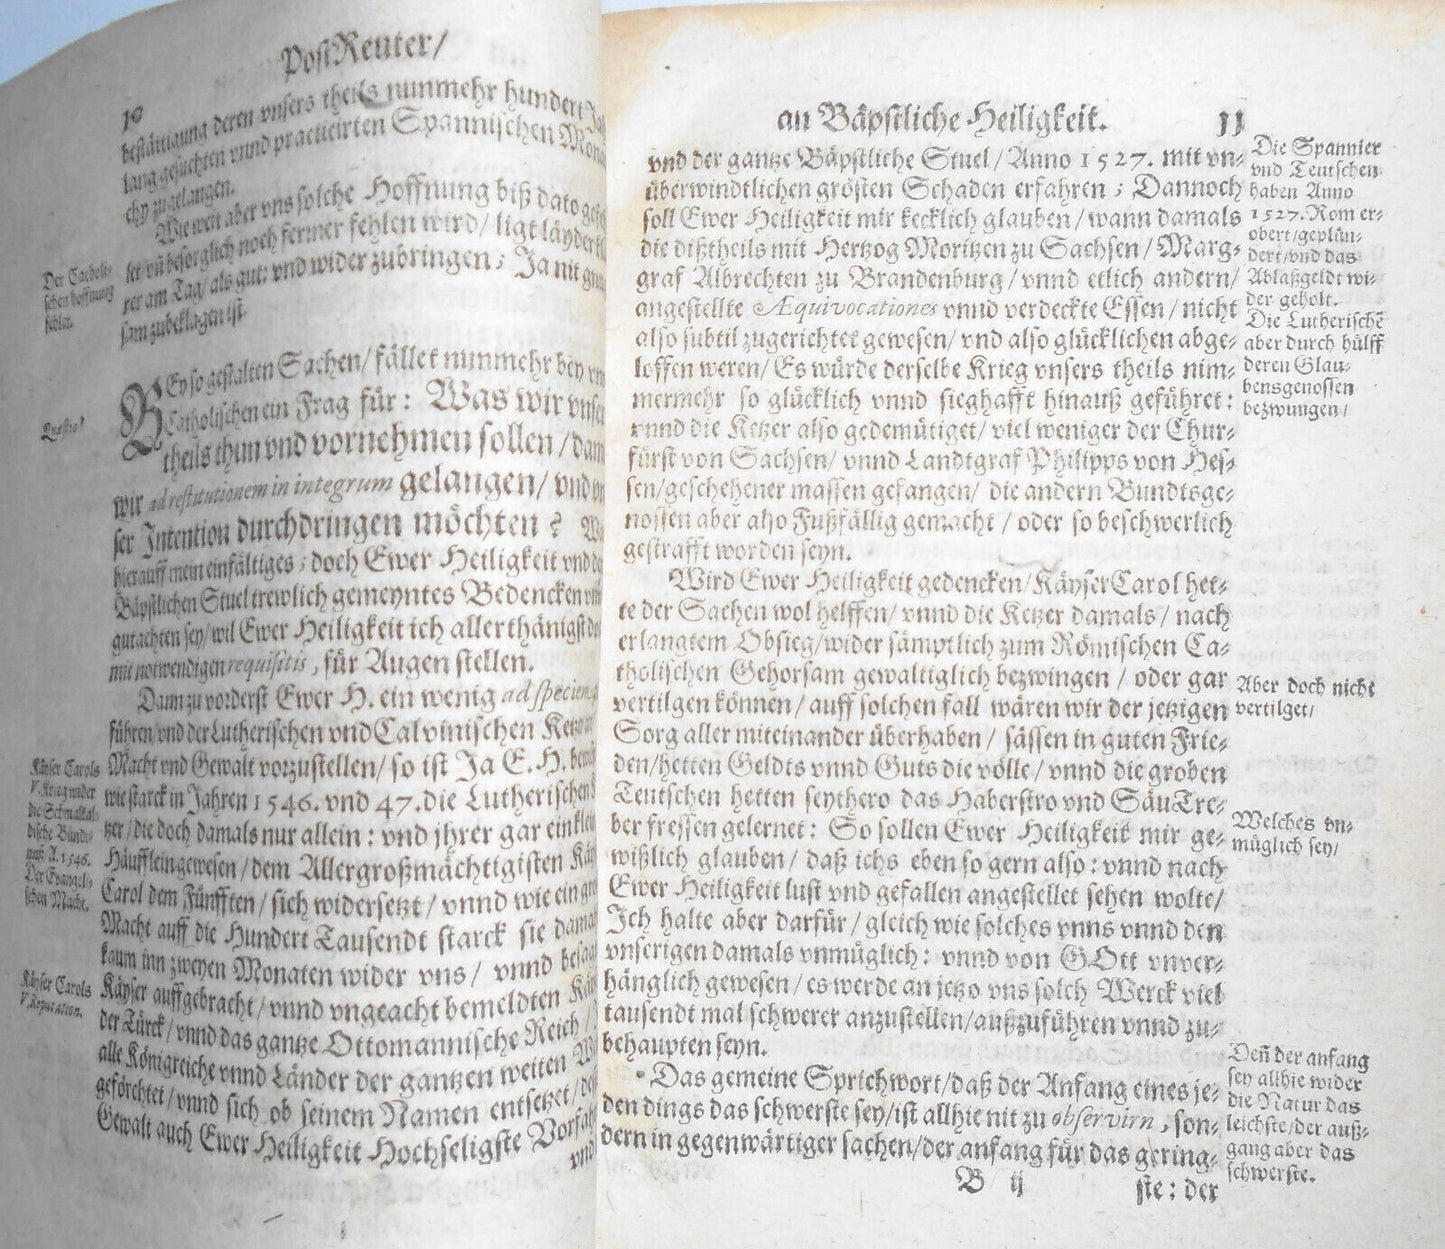 PostReuter/
10
bestättigung deren vnsers theils nunmehr hundert Jah
lang gesuchten vnnd practicirten Spannischen Mona
chy zugelangen.
Wie weit aber vns solche Hoffnung biß dato gef
let vñ besorglich noch ferner fehlen wird/ ligt läyder
rer am Tag/ als gut: vnd wider zubringen; Ja nit gnu
sam zubeklagen ist.
Der Catholi-
schen hoffnung
fehlet.
BEy so gestalten Sachen/ fället nunmehr bey vn
Catholischen ein Frag für: Was wir vnser
theils thun vnd vornehmen sollen/ dam
wir ad restitutionem in integrum gelangen/ vnd
ser Intention durchdringen möchten?
hierauff mein einfältiges; doch Ewer Heiligkeit vnd de
Bäpstlichen Stuel trewlich gemeyntes Bedencken
gutachten sey/ wil Ewer Heiligkeit ich allerthänigst
mit notwendigen requisitis, für Augen stellen.
Quæstio?
Dann zu vorderst Ewer H. ein wenig ad speciem
führen/ vnd der Lutherischen vnd Calvinischen Ketzer
Macht vnd Gewalt vorzustellen/ so ist Ja E. H.
wie starck in Jahren 1546. vnd 47. die Lutherischen
tzer/ die doch damals nur allein: vnd jhrer gar ein klein
Häufflein gewesen/ dem Allergroßmächtigisten Käy
Carol dem Fünfften/ sich widersetzt/ vnnd wie ein
Macht auff die Hundert Tausendt starck sie dama
kaum inn zweyen Monaten wider vns/ vnnd besag
Käyser auffgebracht/ vnnd vngeacht bemeldten Käy
der Türck/ vnnd das gantze Ottomannische Reich/
alle Königreiche vnnd Länder der gantzen weiten W
geförchtet/ vnnd sich ob seinem Namen entsetzet/
Gewalt auch Ewer Heiligkeit Hochseligste Vorfah
vnd
Käyser Carols
V. Krieg wider
die Schmalkal-
dische Bunds-
nuß A. 1546.
Der Evangeli-
schen Macht.
Käyser Carols
V. Reputation.
an Bäpstliche Heiligkeit. 11
vnd der gantze Bäpstliche Stuel/ Anno 1527. mit vn-
überwindtlichen grösten Schaden erfahren; Dannoch
soll Ewer Heiligkeit mir kecklich glauben/ wann damals
die dißtheils mit Hertzog Moritzen zu Sachsen/ Marg-
graf Albrechten zu Brandenburg/ vnnd etlich andern/
angestellte Æquivocationes vnnd verdeckte Essen/ nicht
also subtil zugerichtet gewesen/ vnd also glücklichen abge-
loffen weren/ Es würde derselbe Krieg vnsers theils nim-
mermehr so glücklich vnnd sieghafft hinauß geführet:
vnnd die Ketzer also gedemütiget/ viel weniger der Chur-
fürst von Sachsen/ vnnd Landtgraf Philipps von Hes-
sen/ geschehener massen gefangen/ die andern Bundtsge-
nossen aber also Fußfällig gemacht/ oder so beschwerlich
gestrafft worden seyn.
Wird Ewer Heiligkeit gedencken/ Käyser Carol het-
te der Sachen wol helffen/ vnnd die Ketzer damals/ nach
erlangtem Obsieg/ wider sämptlich zum Römischen Ca-
tholischen Gehorsam gewaltiglich bezwingen/ oder gar
vertilgen können/ auff solchen fall wären wir der jetzigen
Sorg aller miteinander überhaben/ sässen in guten Frie-
den/ hetten Geldts vnnd Guts die völle/ vnnd die groben
Teutschen hetten seythero das Haberstro vnd Säu Tre-
ber fressen gelernet: So sollen Ewer Heiligkeit mir ge-
wißlich glauben/ daß ichs eben so gern also: vnnd nach
Ewer Heiligkeit lust vnd gefallen angestellet sehen wolte/
Ich halte aber darfür/ gleich wie solches vnns vnnd den
vnserigen damals vnmüglich: vnnd von GOtt vnver-
hänglich gewesen/ es werde an jetzo vns solch Werck viel
tausendt mal schwerer anzustellen/ außzuführen vnnd zu-
behaupten seyn.
Das gemeine Sprichwort/ daß der Anfang eines je-
den dings das schwerste sey/ ist allhie nit zu observirn, son-
dern in gegenwärtiger sachen/ der anfang für das gering-
B ij
ste: der
Die Spannier
vnd Teutschen
haben Anno
1527. Rom er-
obert/ geplün-
dert/ vnd das
Ablaßgeldt wi-
der geholt.
Die Lutherischē
aber durch hülff
deren Glau-
bensgenossen
bezwungen/
Aber doch nicht
vertilget/
Welches vn-
müglich sey/
Deñ der anfang
sey allhie wider
die Natur das
leichste/ der auß-
gang aber das
schwerste.